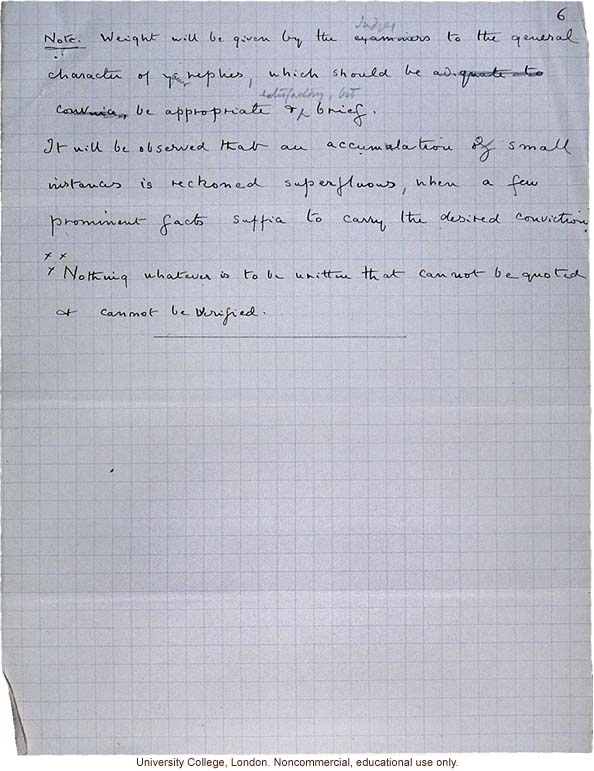 6
judges
Note. Weight will be given by the examiners to the general
character of replies, which should be adequate to
satisfactory, but
convince, be appropriate & brief.
It will be observed that an accumulation of small
instances is reckoned superfluous, when a few
prominent facts suffice to carry the desired conviction
x x
x Nothing whatever is to be written that cannot be quoted
& cannot be verified.
University College, London. Noncommercial, educational use only.